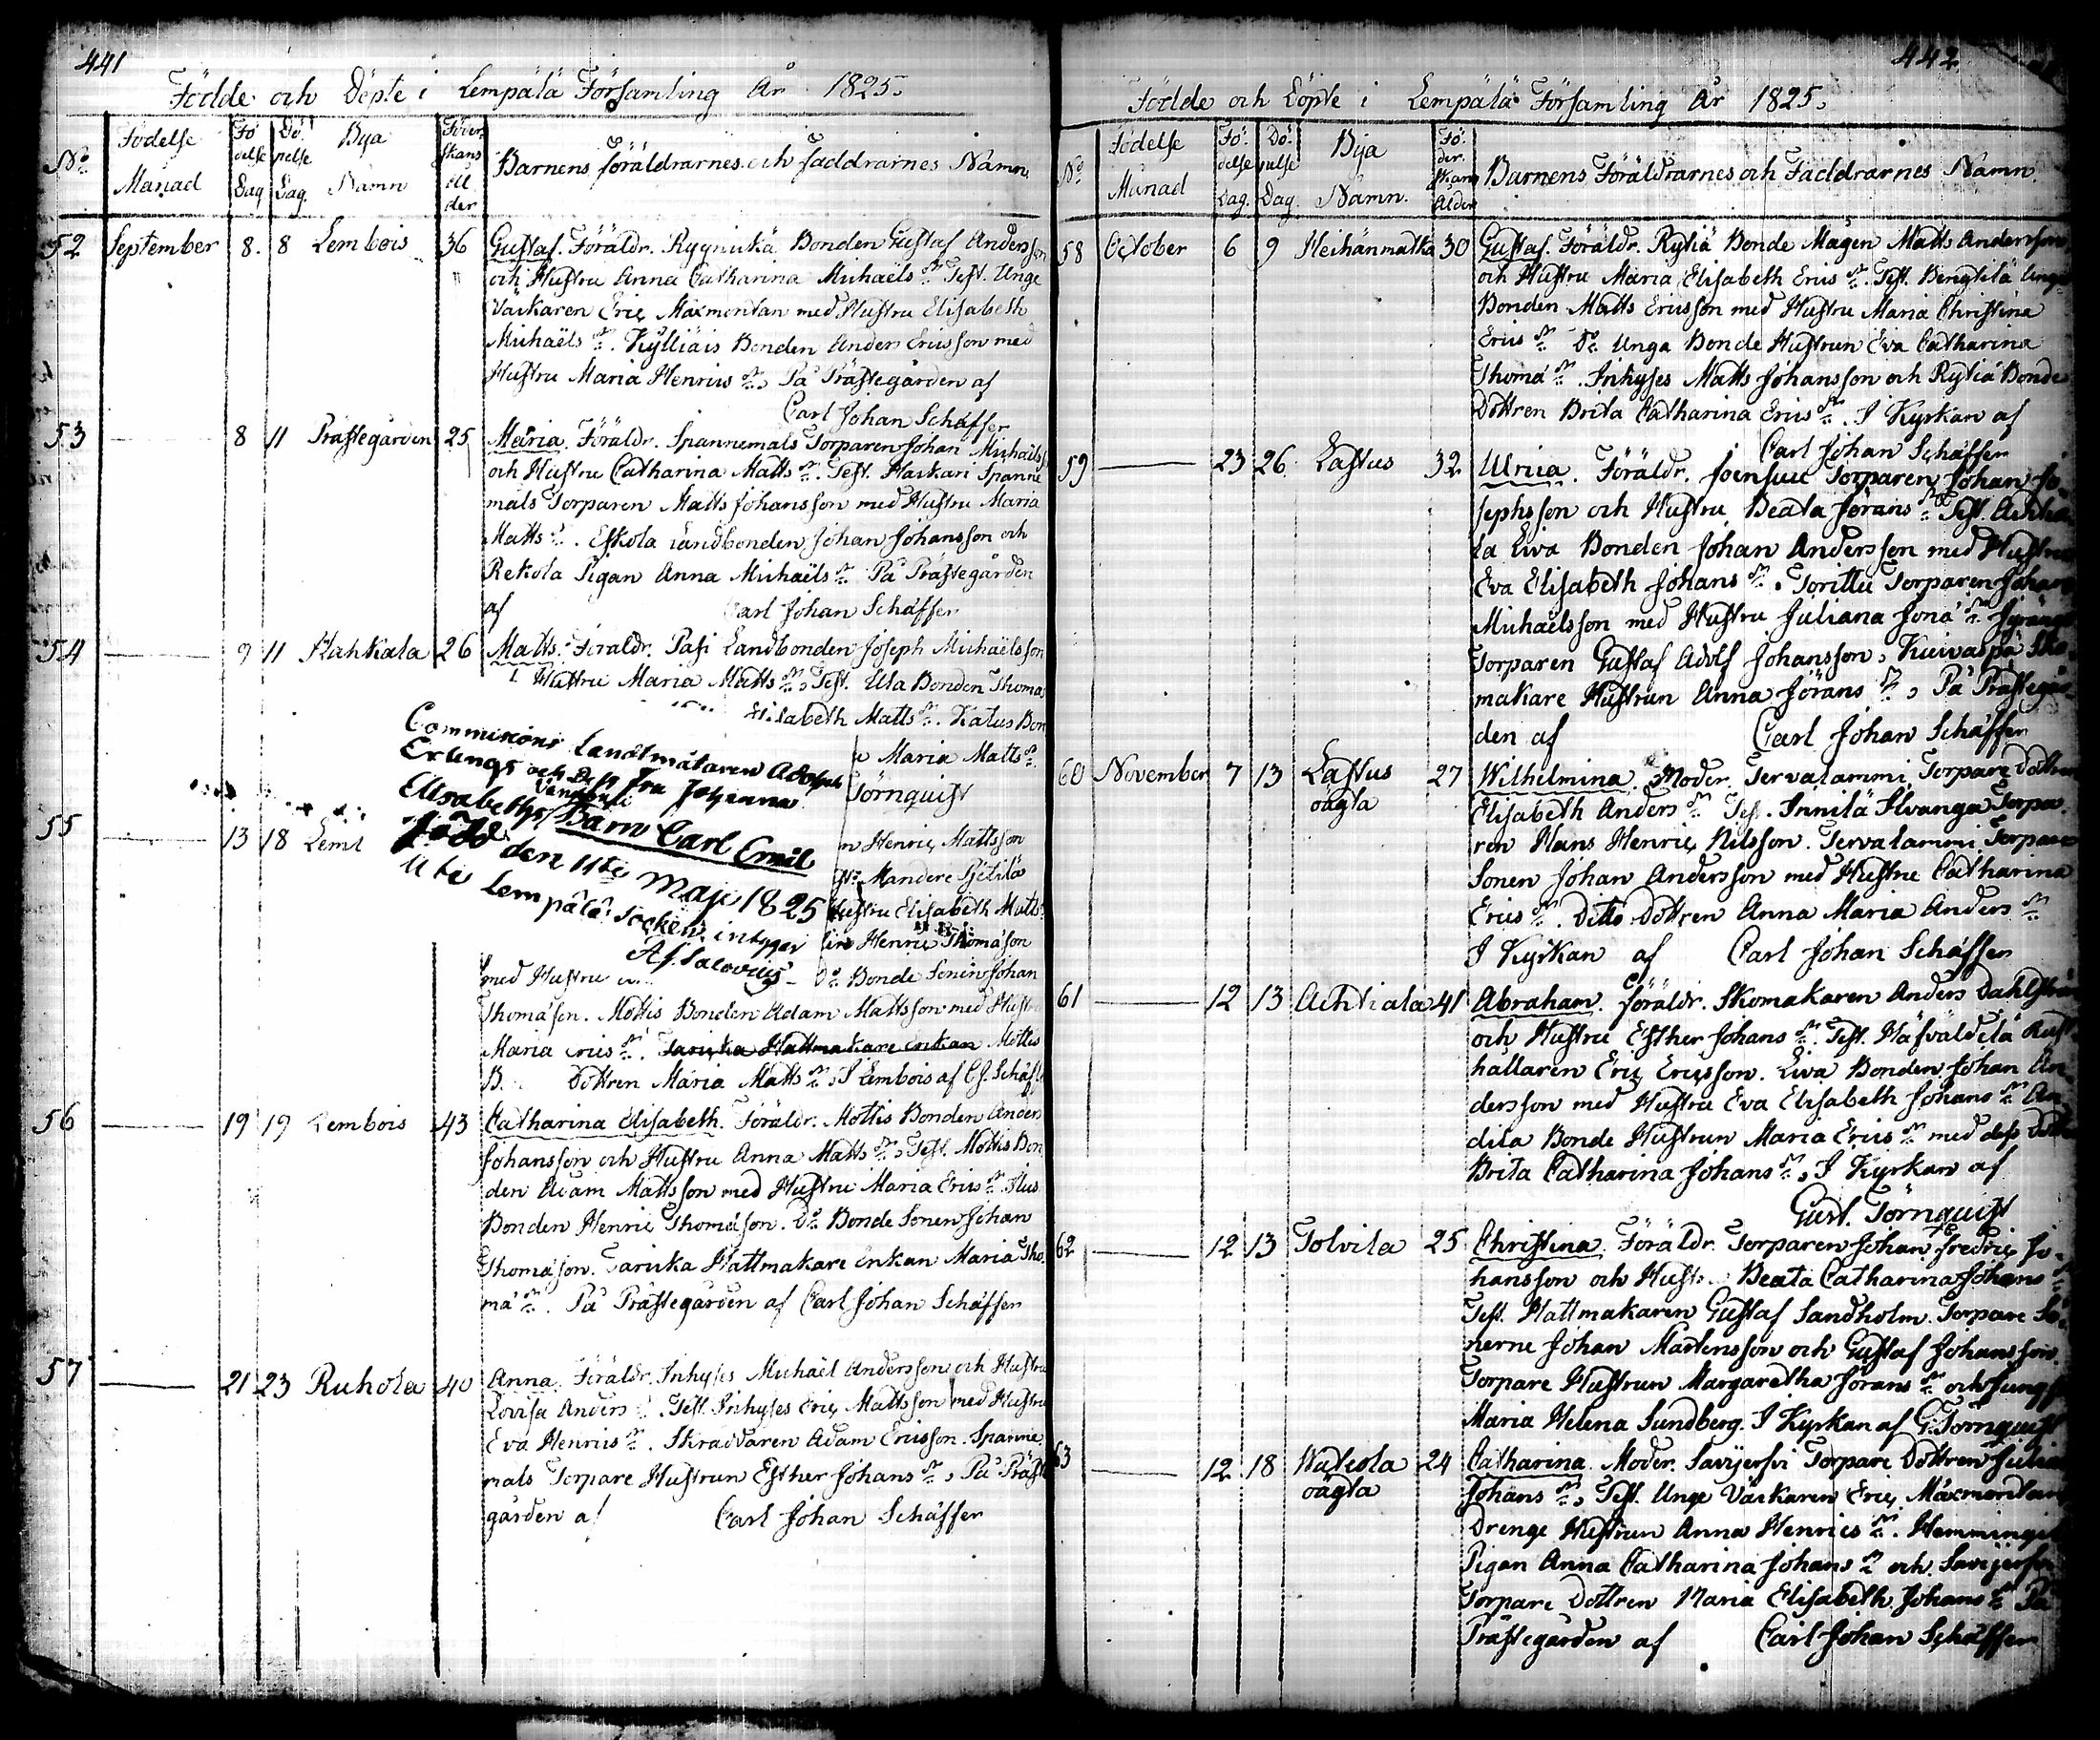 441
Födde och Döpte i Lempälä Församling År 1825.
No. Födelse Månad Födelse Dag Döpelse Dag. Bya Namn Föderskans Ålder Barnens föräldrarnes och faddrarnes Namn
52 September 8. 8 Lembois 36 Gustaf. Föräldr. Bonden Gustaf Andersson
och Hustru Anna Catharina Michaëls dr. Test. Unge
Väckaren Eric Maxmontan med Hustru Elisabeth
Michaëls dr. Bonden Anders Ericsson med
Hustru Maria Henrics dr, På Prästegården af
Carl Johan Schäffer
53 8 11 Prästegården 25 Maria. Föräldr. Spannemåls Torparen Johan Michaëls
och Hustru Catharina Matts dr. Test. Harkari Spanne
måls Torparen Matts Johansson med Hustru Maria
Matts dr. Eskola Landbonden Johan Johansson och
Rekola Pigan Anna Michaëls dr. På Prästegården
af Carl Johan Schäffer
54 9 11 Hahkala 26 Matts. Föräldr. Pasi Landbonden Joseph Michaëlsson
Hustru Maria Matts dr, Test. Uta Bonden Thomas
Elisabeth Matts dr. Katus Bon
Maria Matts dr.
Törnquist
Commissions Landtmätaren Adolph
Erlings och Dess Fru Johanna
Elisabeths Barn Carl Emil
Född den 11te Maji 1825
Uti Lempälä Socken, intygar
Af. Salovius
55 13 18 Lem
Henric Mattsson
Mandere Pjetilä
Hustru Elisabeth Matts
Henric Thomasson
med Hustru Do Bonde Sonen Johan
Thomason. Mottis Bonden Adam Mattsson med Hustru
Maria Erics dr. Taricka Hattmakare Enkan Mottis
B. Dottren Maria Matts dr, I Lembois af C.J. Schäffer
56 19 19 Lembois 43 Catharina Elisabeth. Föräldr. Mottis Bonden Anders
Johansson och Hustru Anna Matts dr, Test. Mottis Bon
den Adam Mattsson med Hustru Maria Erics dr.
Bonden Henric Thomasson. Do Bonde Sonen Johan
Thomason. Taricka Hattmakare Enkan Maria Tho
mä dr. På Prästegården af Carl Johan Schäffer
57 21 23 Ruhola 40 Anna. Föräldr. Inhyses Michaël Andersson och Hustru
Lovisa Anders dr. Test. Inhyses Eric Mattsson med Hustru
Eva Henrics dr. Skräddaren Adam Ericsson. Spanne
måls Torpare Hustrun Esther Johans dr, På Präst
gården af Carl Johan Schäffer
442
Födde och Döpte i Lempälä Församling År 1825.
No Födelse Månad Födelse Dag. Döpelse Dag. Bya Namn. Föderskans Ålder Barnens Föräldrarnes och Faddrarnes Namn.
58 October 6 9 Heihänmatka 30 Gustaf. Föräldr. Rytiä Bonde Mågen Matts Andersson
och Hustru Maria Elisabeth Erics dr. Test. Bengtilä Unga
Bonden Matts Ericsson med Hustru Maria Christina
Erics dr Do Unga Bonde Hustrun Eva Catharina
Thomä dr. Inhyses Matts Johansson och Rytiä Bonde
Dottren Brita Catharina Erics dr. I Kyrkan af
Carl Johan Schäffer
59 23 26. Lastus 32 Ulrica. Föräldr. Joensuu Torparen Johan Jo
sephsson och Hustru Beata Jörans dr Test. Achtia
la Eiva Bonden Johan Andersson med Hustru
Eva Elisabeth Johans dr. Torittu Torparen Johan
Michaëlsson med Hustru Juliana Jona dr.
Torparen Gustaf Adolf Johansson, Kuivaspä Sko
makare Hustrun Anna Jörans dr, På Prästegår
den af Carl Johan Schäffer
60 November 7 13 Lastus oägta 27 Wilhelmina. Moder. Tervalammi Torpare Dottren
Elisabeth Anders dr Test. Innilä Ilvanga Torpa
ren Hans Henric Nilsson. Tervalammi Torpare
Sonen Johan Andersson med Hustru Catharina
Erics dr. Ditto Dottren Anna Maria Anders dr
I Kyrkan af Carl Johan Schäffer
61 12 13 Achtiala 41 Abraham. Föräldr. Skomakaren Anders Dahlström
och Hustru Esther Johans dr. Test. Rust
hållaren Eric Ericsson. Eiva Bonden Johan An
dersson med Hustru Eva Elisabeth Johans dr An
dila Bonde Hustrun Maria Erics dr med dess Dotter
Brita Catharina Johans dr, I Kyrkan af
Gust. Törnquist
62 12 13 Tolvila 25 Christina. Föräldr. Torparen Johan Fredric Jo
hansson och Hustru Beata Catharina Johans dr
Test. Hattmakaren Gustaf Sandholm. Torpare Sö
nerne Johan Mårtensson och Gustaf Johansson.
Torpare Hustrun Margaretha Jörans dr och Jungf.
Maria Helena Sundberg. I Kyrkan af G. Törnquist
63 12 18 Watiola oägta 24 Catharina. Moder. Savijersvi Torpare Dottren Julia
Johans dr, Test. Unge Väckaren Eric Maxmontan
Drenge Hustrun Anna Henrics dr. Hemmingi
Pigan Anna Catharina Johans dr och Savijersvi
Torpare Dottren Maria Elisabeth Johans dr På
Prästegården af Carl Johan Schäffer